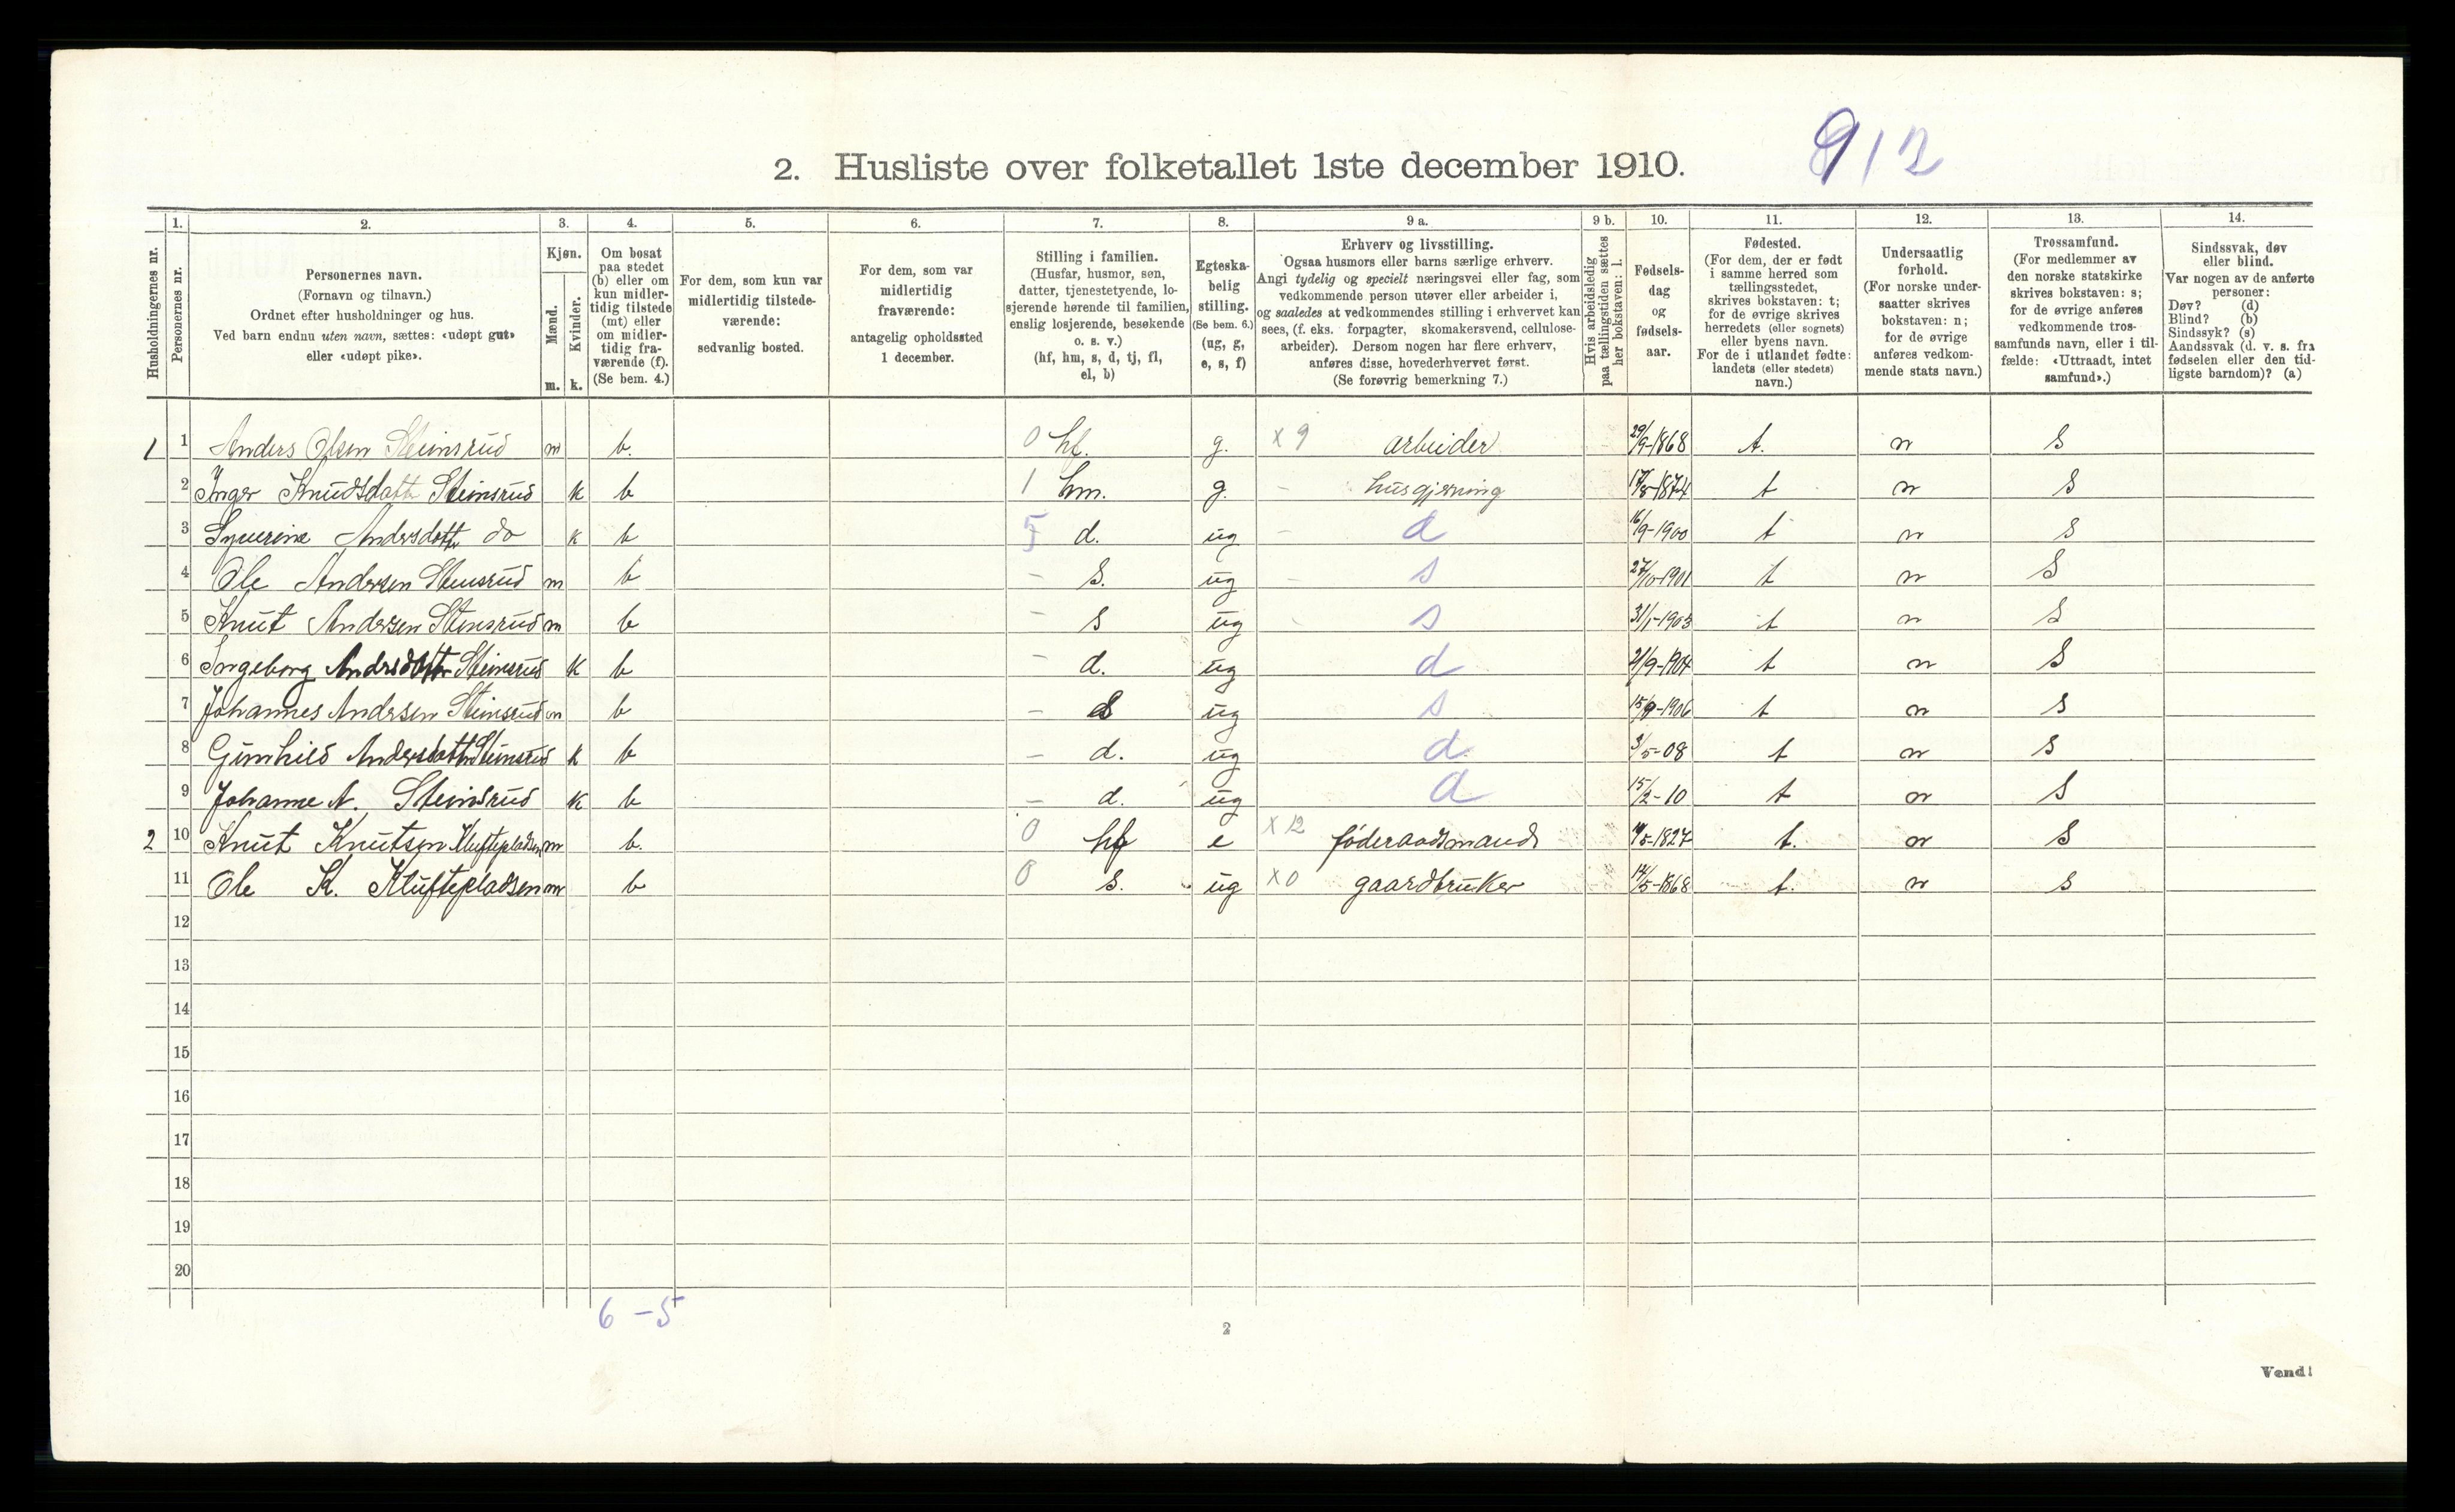 2. Husliste over folketallet 1ste december 1910. 912
Husholdningernes nr.
1. Personernes nr.
2. Personernes navn.
(Fornavn og tilnavn.)
Ordnet efter husholdninger og hus.
Ved barn endnu uten navn, sættes: «udøpt gut»
eller «udøpt pike».
3. Kjøn.
Mænd. m.
Kvinder. k.
4. Om bosat
paa stedet
(b) eller om
kun midler-
tidig tilstede
(mt) eller
om midler-
tidig fra-
værende (f).
(Se bem. 4.)
5. For dem, som kun var
midlertidig tilstede-
værende:
sedvanlig bosted.
6. For dem, som var
midlertidig
fraværende:
antagelig opholdssted
1 december.
7. Stilling i familien.
(Husfar, husmor, søn,
datter, tjenestetyende, lo-
sjerende hørende til familien,
enslig losjerende, besøkende
o. s. v.)
(hf, hm, s, d, tj, fl,
el, b)
8. Egteska-
belig
stilling.
(Se bem. 6.)
(ug, g,
e, s, f)
9 a. Erhverv og livsstilling.
Ogsaa husmors eller barns særlige erhverv.
Angi tydelig og specielt næringsvei eller fag, som
vedkommende person utøver eller arbeider i,
og saaledes at vedkommendes stilling i erhvervet kan
sees, (f. eks. forpagter, skomakersvend, cellulose-
arbeider). Dersom nogen har flere erhverv,
anføres disse, hovederhvervet først.
(Se forøvrig bemerkning 7.)
9 b. Hvis arbeidsledig
paa tællingstiden sættes
her bokstaven: l.
10. Fødsels-
dag
og
fødsels-
aar.
11. Fødested.
(For dem, der er født
i samme herred som
tællingsstedet,
skrives bokstaven: t;
for de øvrige skrives
herredets (eller sognets)
eller byens navn.
For de i utlandet fødte:
landets (eller stedets)
navn.)
12. Undersaatlig
forhold.
(For norske under-
saatter skrives
bokstaven: n;
for de øvrige
anføres vedkom-
mende stats navn.)
13. Trossamfund.
(For medlemmer av
den norske statskirke
skrives bokstaven: s;
for de øvrige anføres
vedkommende tros-
samfunds navn, eller i til-
fælde: «Uttraadt, intet
samfund».)
14. Sindssvak, døv
eller blind.
Var nogen av de anførte
personer:
Døv? (d)
Blind? (b)
Sindssyk? (s)
Aandssvak (d. v. s. fra
fødselen eller den tid-
ligste barndom)? (a)
1 1 Anders Olsen Steinsrud m b. 0 hf. g. x 9 arbeider 29/9-1868 t. n s
2 Inger Knudsdatt Steinsrud k b 1 hm. g. - husgjerning 17/8-1874 t n s
3 Syverine Andersdatt do k b 5 d. ug - d 16/9-1900 t n s
4 Ole Andersen Steinsrud m b - s. ug - s 27/10-1901 t n s
5 Knut Andersen Steinsrud m b - s ug - s 31/1-1903 t n s
6 Ingeborg Andersdatter Steinsrud k b - d. ug d 21/9-1904 t n s
7 Johannes Andersen Steinsrud m b - s ug s 15/9-1906 t n s
8 Gunhild Andersdatter Steinsrud k b - d. ug d. 3/5-08 t n s
9 Johanne A. Steinsrud k b - d. ug d 15/2-10 t n s
2 10 Knut Knutsen Kluftepladsen m b. 0 hf e x 12 føderaadsmand /5-1827 t. n s
11 Ole K. Kluftepladsen m b 0 s. ug x 0 gaardbruker 14/5-1868 t. n s
12
13
14
15
16
17
18
19
20
6 - 5
2
Vend!